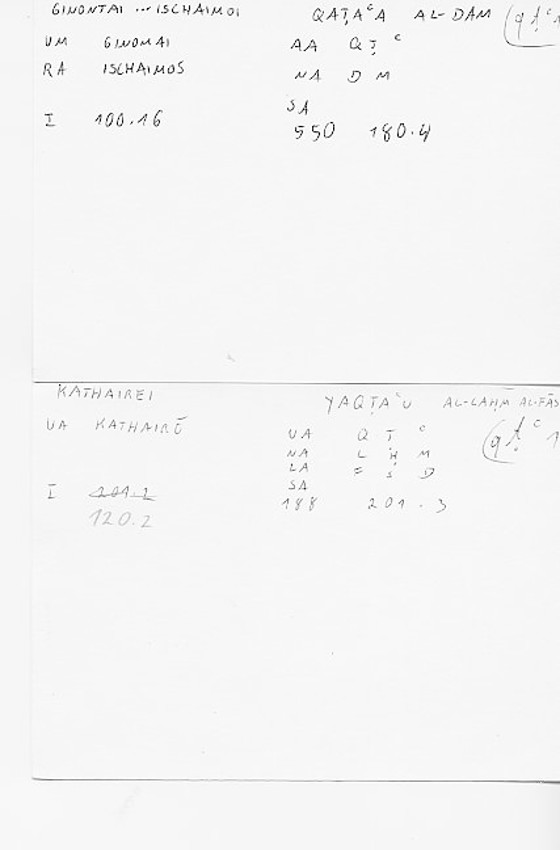 GINONTAI ... ISCHAIMOI QAṬAᶜA AL-DAM
UM GINOMAI AA Q Ṭ ᶜ
RA ISCHAIMOS NA D M
SA
I 100.16 550 180.4
KATHAIREI YAQṬAᶜU AL-LAḤM AL-FĀS
UA KATHAIRŌ UA Q Ṭ ᶜ
NA L Ḥ M
LA F S D
SA
I 201.2 188 201.3
120.2